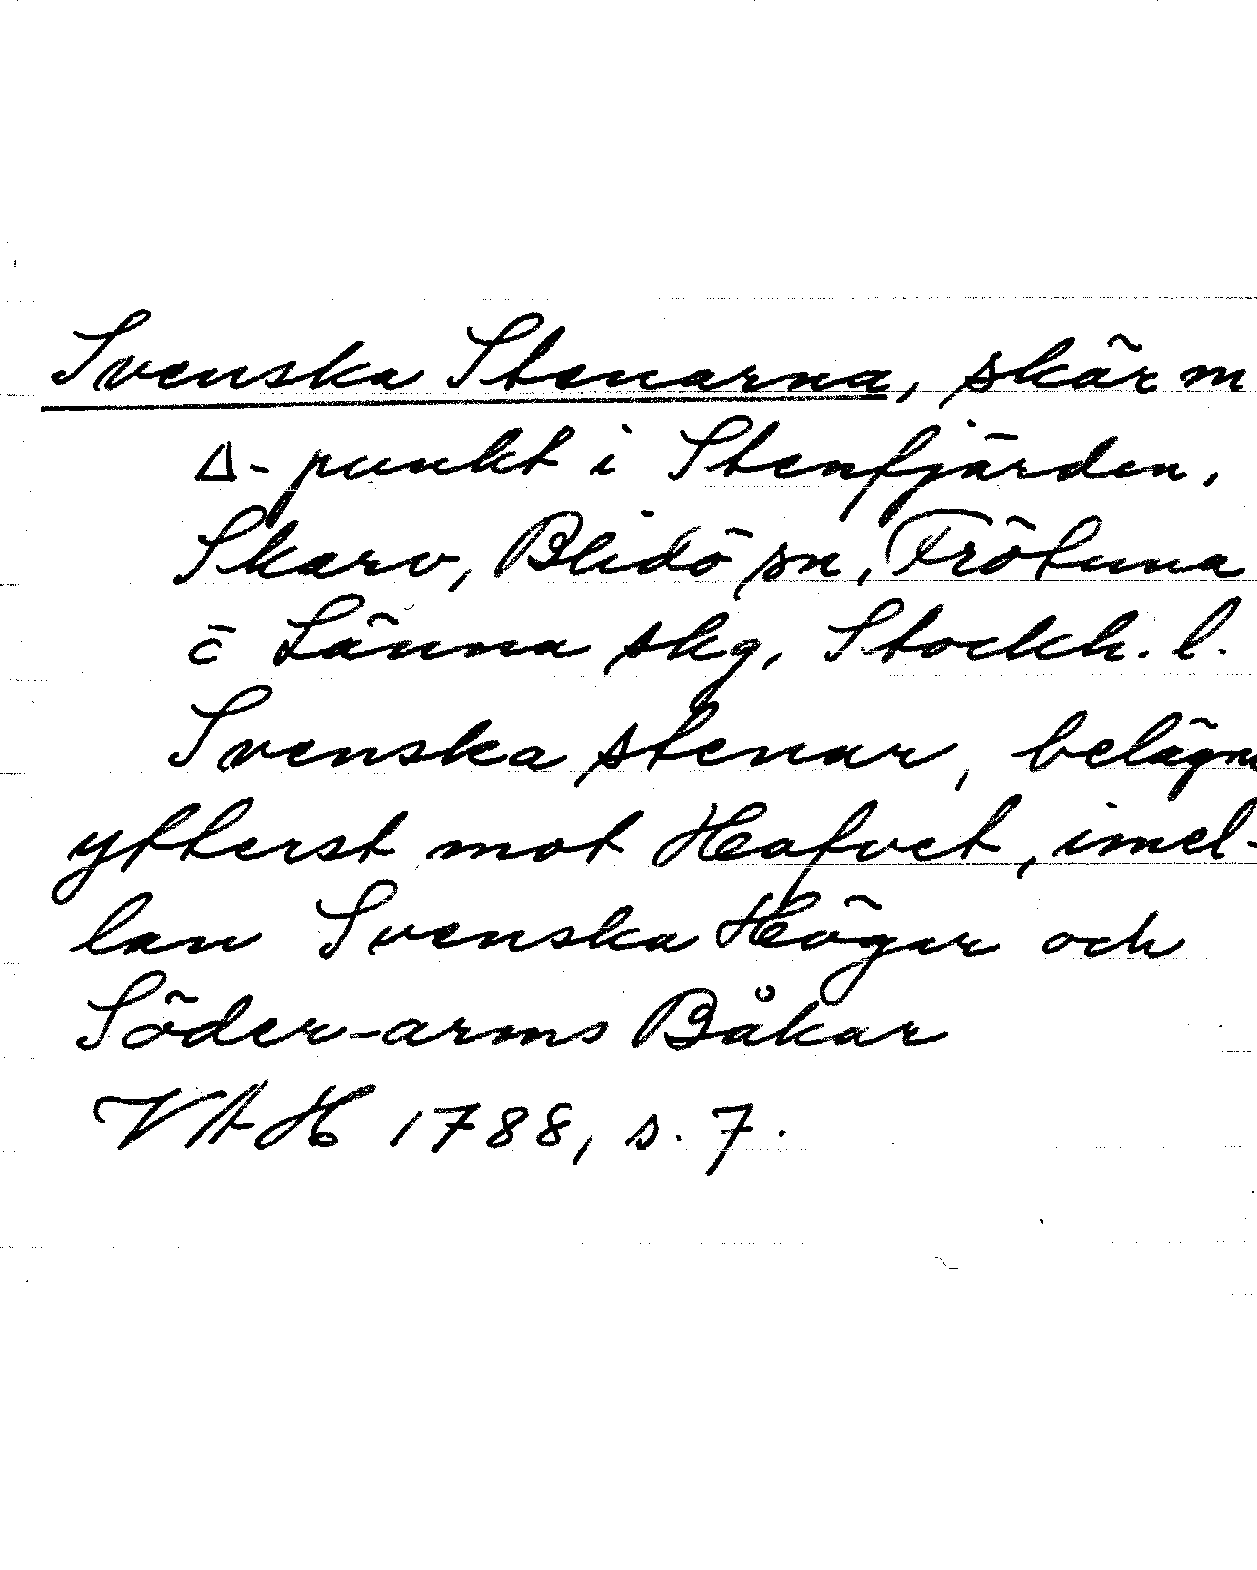 Svenska Stenarna, skär m
Δ-punkt i Stenfjärden,
Skarv, Blidö sn, Frötuna
o Länna skg, Stockh. l.
Svenska stenar, belägn
ytterst mot Hafvet, imel-
lan Svenska Högar och
Söder-arms Båkar
VAH 1788, s. 7.